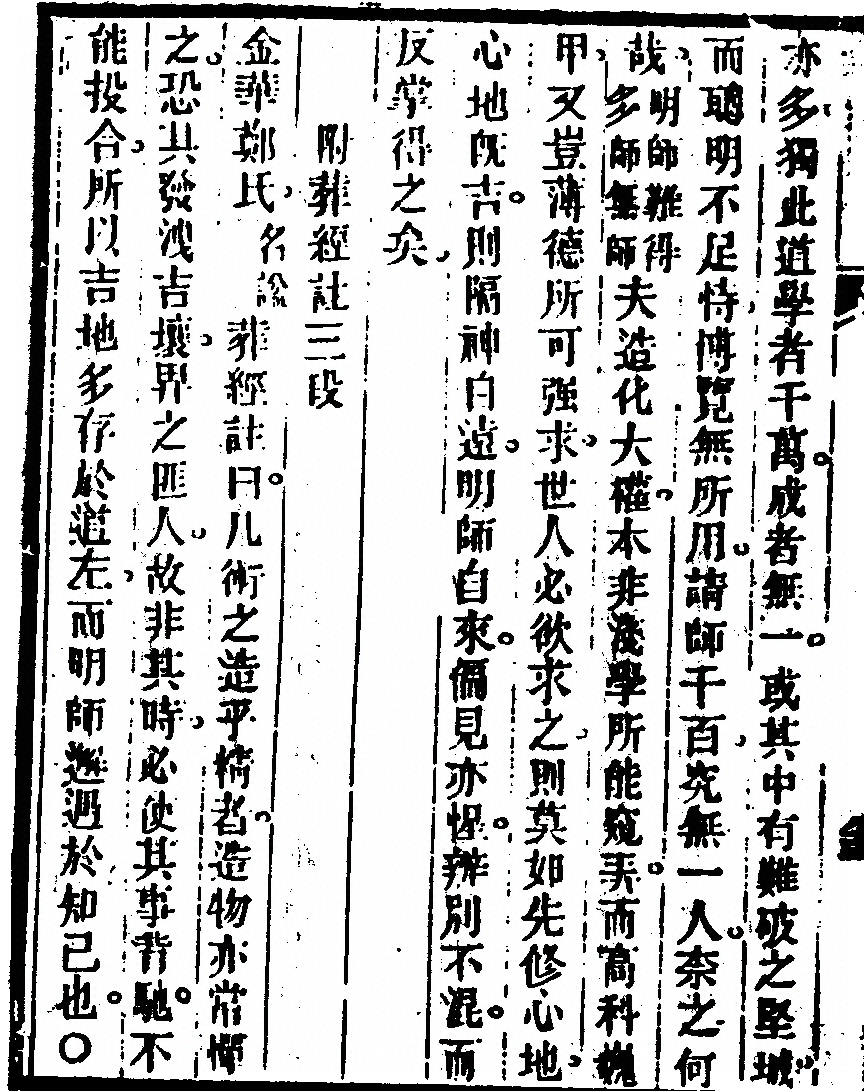 亦多獨此道學者千萬成者無一或其中有難破之堅城
而聰明不足恃博覽無所用請師千百究無一人柰之何
哉明師難得多師無師夫造化大權本非淺學所能窺而高科巍
甲又豈薄德所可强求世人必欲求之則莫如先修心地
心地既吉則陽神自遠明師自來偏見亦惺辨別不混而
反掌得之矣
附葬經註三段
金華鄭氏名謐葬經註曰凡術之造乎精者造物亦常憚
之恐其發洩吉壤畀之匪人故非其時必使其事背馳不
能投合所以吉地多存於道左而明師邂遇於知己也〇